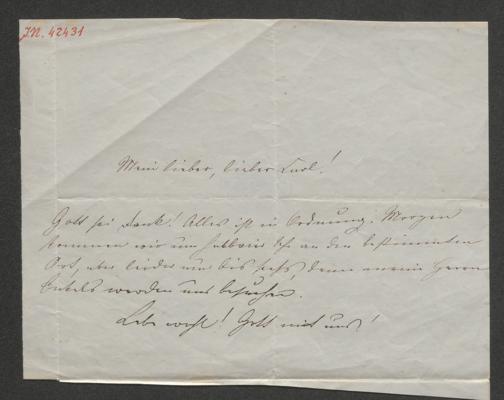 J.N. 42431
Mein lieber, lieber Carl!
Gott sei Dank! Alles ist in Ordnung. Morgen
kommen wir um halb vier Uhr an den bestimmten
Ort, aber leider nur bis sechs, denn meine Herren
Onkels werden uns besuchen.
Lebe wohl! Gott mit uns!